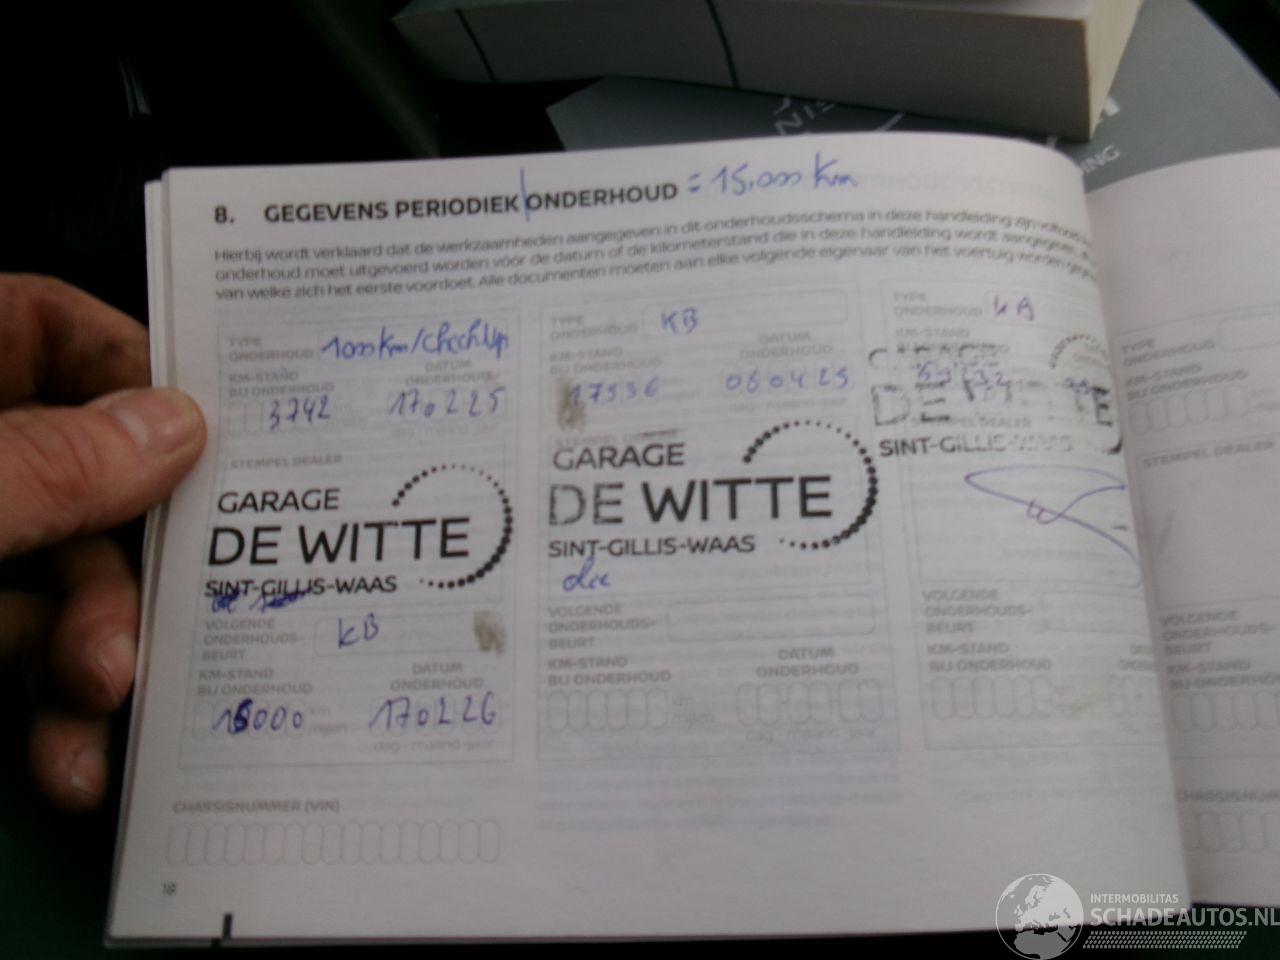 NIS
ING
8. GEGEVENS PERIODIEK ONDERHOUD = 15.000 km
Hierbij wordt verklaard dat de werkzaamheden aangegeven in dit onderhoudsschema in deze handleiding zijn
onderhoud moet uitgevoerd worden vóór de datum of de kilometerstand die in deze handleiding wordt aangegeven
van welke zich het eerste voordoet. Alle documenten moeten aan elke volgende eigenaar van het voertuig worden
TYPE
ONDERHOUD 1000 km/check up
KM-STAND
BIJ ONDERHOUD
DATUM
ONDERHOUD
3742
170225
dag - maand - jaar
STEMPEL DEALER
GARAGE
DE WITTE
SINT-GILLIS-WAAS
VOLGENDE
ONDERHOUDS-
BEURT
KB
KM-STAND
BIJ ONDERHOUD
DATUM
ONDERHOUD
15000 km
mijlen
170226
dag - maand - jaar
CHASSISNUMMER (VIN)
18
TYPE
ONDERHOUD KB
KM-STAND
BIJ ONDERHOUD
DATUM
ONDERHOUD
17536
060425
STEMPEL DEALER
GARAGE
DE WITTE
SINT-GILLIS-WAAS
VOLGENDE
ONDERHOUDS-
BEURT
KM-STAND
BIJ ONDERHOUD
DATUM
ONDERHOUD
km
mijlen
dag - maand - jaar
TYPE
ONDERHOUD KB
KM-STAND
BIJ ONDERHOUD
DEALER
SINT-GILLIS-WAAS
VOLGENDE
ONDERHOUDS-
BEURT
KM-STAND
BIJ ONDERHOUD
TYPE
ONDERHOUD
KM-STAND
BIJ ONDERHOUD
STEMPEL DEALER
VOLGENDE
ONDERHOUDS-
BEURT
KM-STAND
BIJ ONDERHOUD
INTERMOBILITAS
SCHADEAUTOS.NL